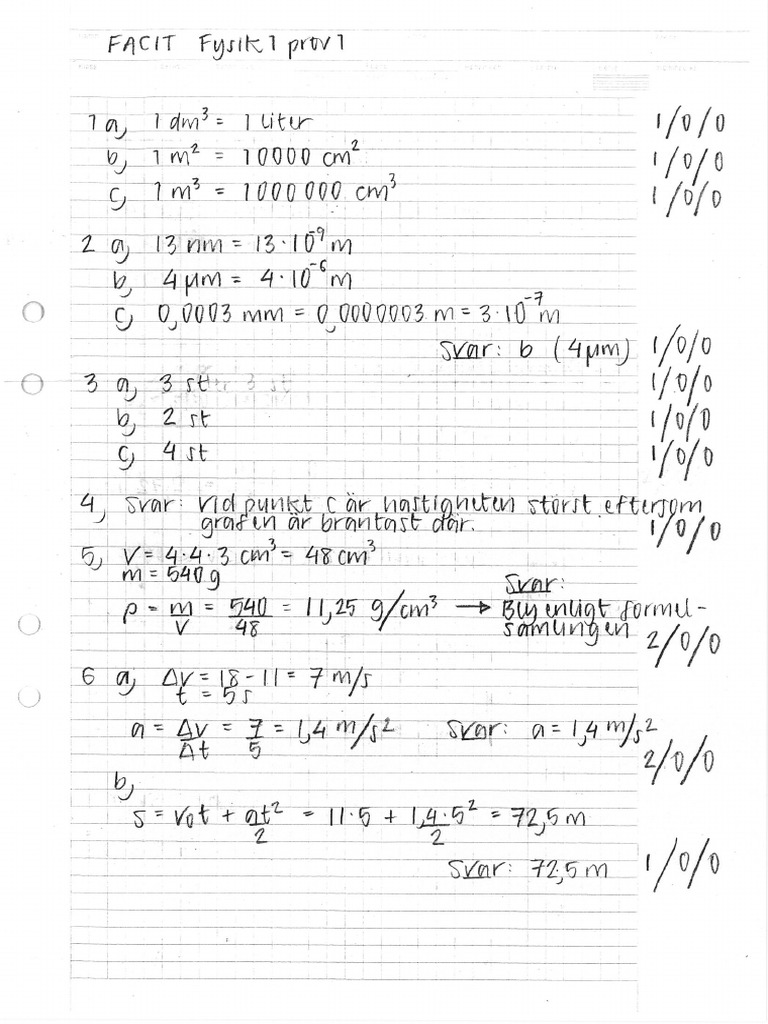 FACIT Fysik 1 prov 1
1 a, 1 dm³ = 1 liter 1/0/0
b, 1 m² = 10000 cm² 1/0/0
c, 1 m³ = 1000 000 cm³ 1/0/0
2 a, 13 nm = 13·10⁻⁹ m
b, 4 µm = 4·10⁻⁶ m
c, 0,0003 mm = 0,0000003 m = 3·10⁻⁷ m
Svar: b (4µm) 1/0/0
3 a, 3 st 1/0/0
b, 2 st 1/0/0
c, 4 st 1/0/0
4, Svar: Vid punkt C är hastigheten störst eftersom
grafen är brantast där. 1/0/0
5, V = 4·4·3 cm³ = 48 cm³
m = 540 g
ρ = m/V = 540/48 = 11,25 g/cm³ → Svar: Bly enligt formel-
samlingen 2/0/0
6 a, Δv = 18 - 11 = 7 m/s
t = 5 s
a = Δv/Δt = 7/5 = 1,4 m/s² Svar: a = 1,4 m/s²
2/0/0
b,
s = v₀t + at²/2 = 11·5 + 1,4·5²/2 = 72,5 m
Svar: 72,5 m 1/0/0